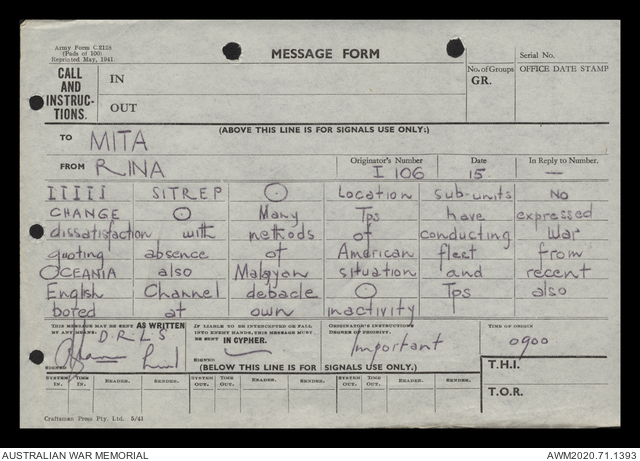 Army Form C.2128
(Pads of 100)
Reprinted May, 1941.
MESSAGE FORM
Serial No.
CALL AND INSTRUC-TIONS.
IN
OUT
No. of Groups
GR.
OFFICE DATE STAMP
(ABOVE THIS LINE IS FOR SIGNALS USE ONLY.)
TO MITA
FROM RINA
Originator's Number
I 106
Date
15
In Reply to Number.
—
IIIII SITREP ⊙ Location sub-units No
CHANGE ⊙ Many Tps have expressed
dissatisfaction with methods of conducting War
quoting absence of American fleet from
OCEANIA also Malayan situation and recent
English Channel debacle ⊙ Tps also
bored at own inactivity
THIS MESSAGE MAY BE SENT AS WRITTEN
BY ANY MEANS.
D.R.L.S
SIGNED
IF LIABLE TO BE INTERCEPTED OR FALL
INTO ENEMY HANDS, THIS MESSAGE MUST
BE SENT IN CYPHER.
SIGNED
ORIGINATOR'S INSTRUCTIONS
DEGREE OF PRIORITY.
Important
TIME OF ORIGIN
0900
T.H.I.
T.O.R.
(BELOW THIS LINE IS FOR SIGNALS USE ONLY.)
SYSTEM IN. TIME IN. READER. SENDER. SYSTEM OUT TIME OUT READER. SENDER. SYSTEM OUT TIME OUT READER. SENDER.
Craftsman Press Pty. Ltd. 5/41
AUSTRALIAN WAR MEMORIAL
AWM2020.71.1393